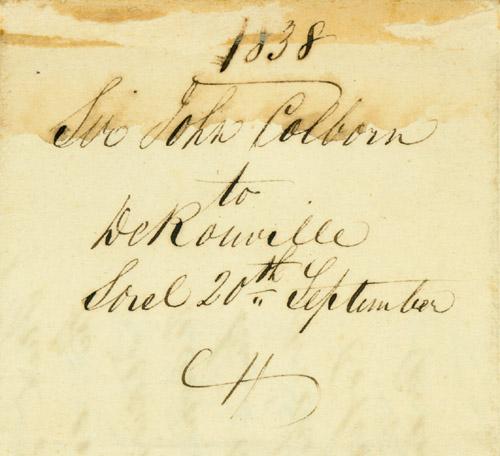 1838
Sir John Colborn
to
DeRouville
Sorel 20th September
H